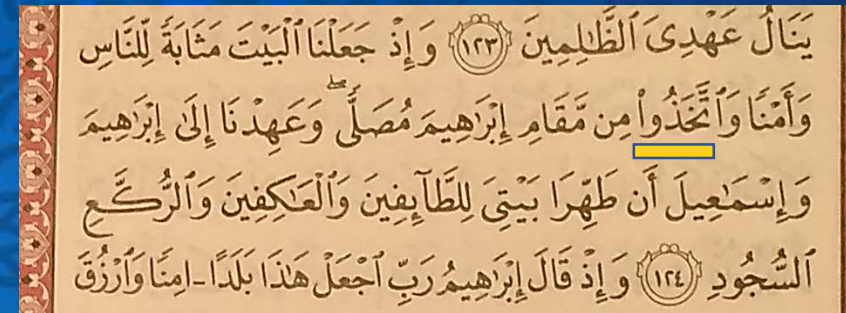 يَنَالُ عَهْدِىَ ٱلظَّٰلِمِينَ ١٢٣ وَإِذْ جَعَلْنَا ٱلْبَيْتَ مَثَابَةً لِّلنَّاسِ
وَأَمْنًا وَٱتَّخَذُواْ مِن مَّقَامِ إِبْرَٰهِيمَ مُصَلًّىۖ وَعَهِدْنَا إِلَىٰ إِبْرَٰهِيمَ
وَإِسْمَٰعِيلَ أَن طَهِّرَا بَيْتِىَ لِلطَّآئِفِينَ وَٱلْعَٰكِفِينَ وَٱلرُّكَّعِ
ٱلسُّجُودِ ١٢٤ وَإِذْ قَالَ إِبْرَٰهِيمُ رَبِّ ٱجْعَلْ هَٰذَا بَلَدًا ـامِنًا وَٱرْزُقَ